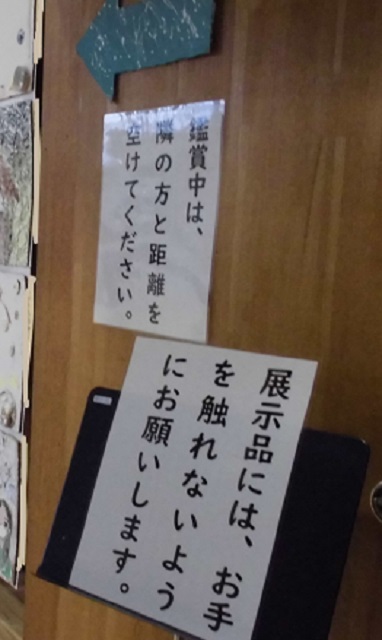 鑑賞中は、
隣の方と距離を
空けてください。
展示品には、お手
を触れないよう
にお願いします。